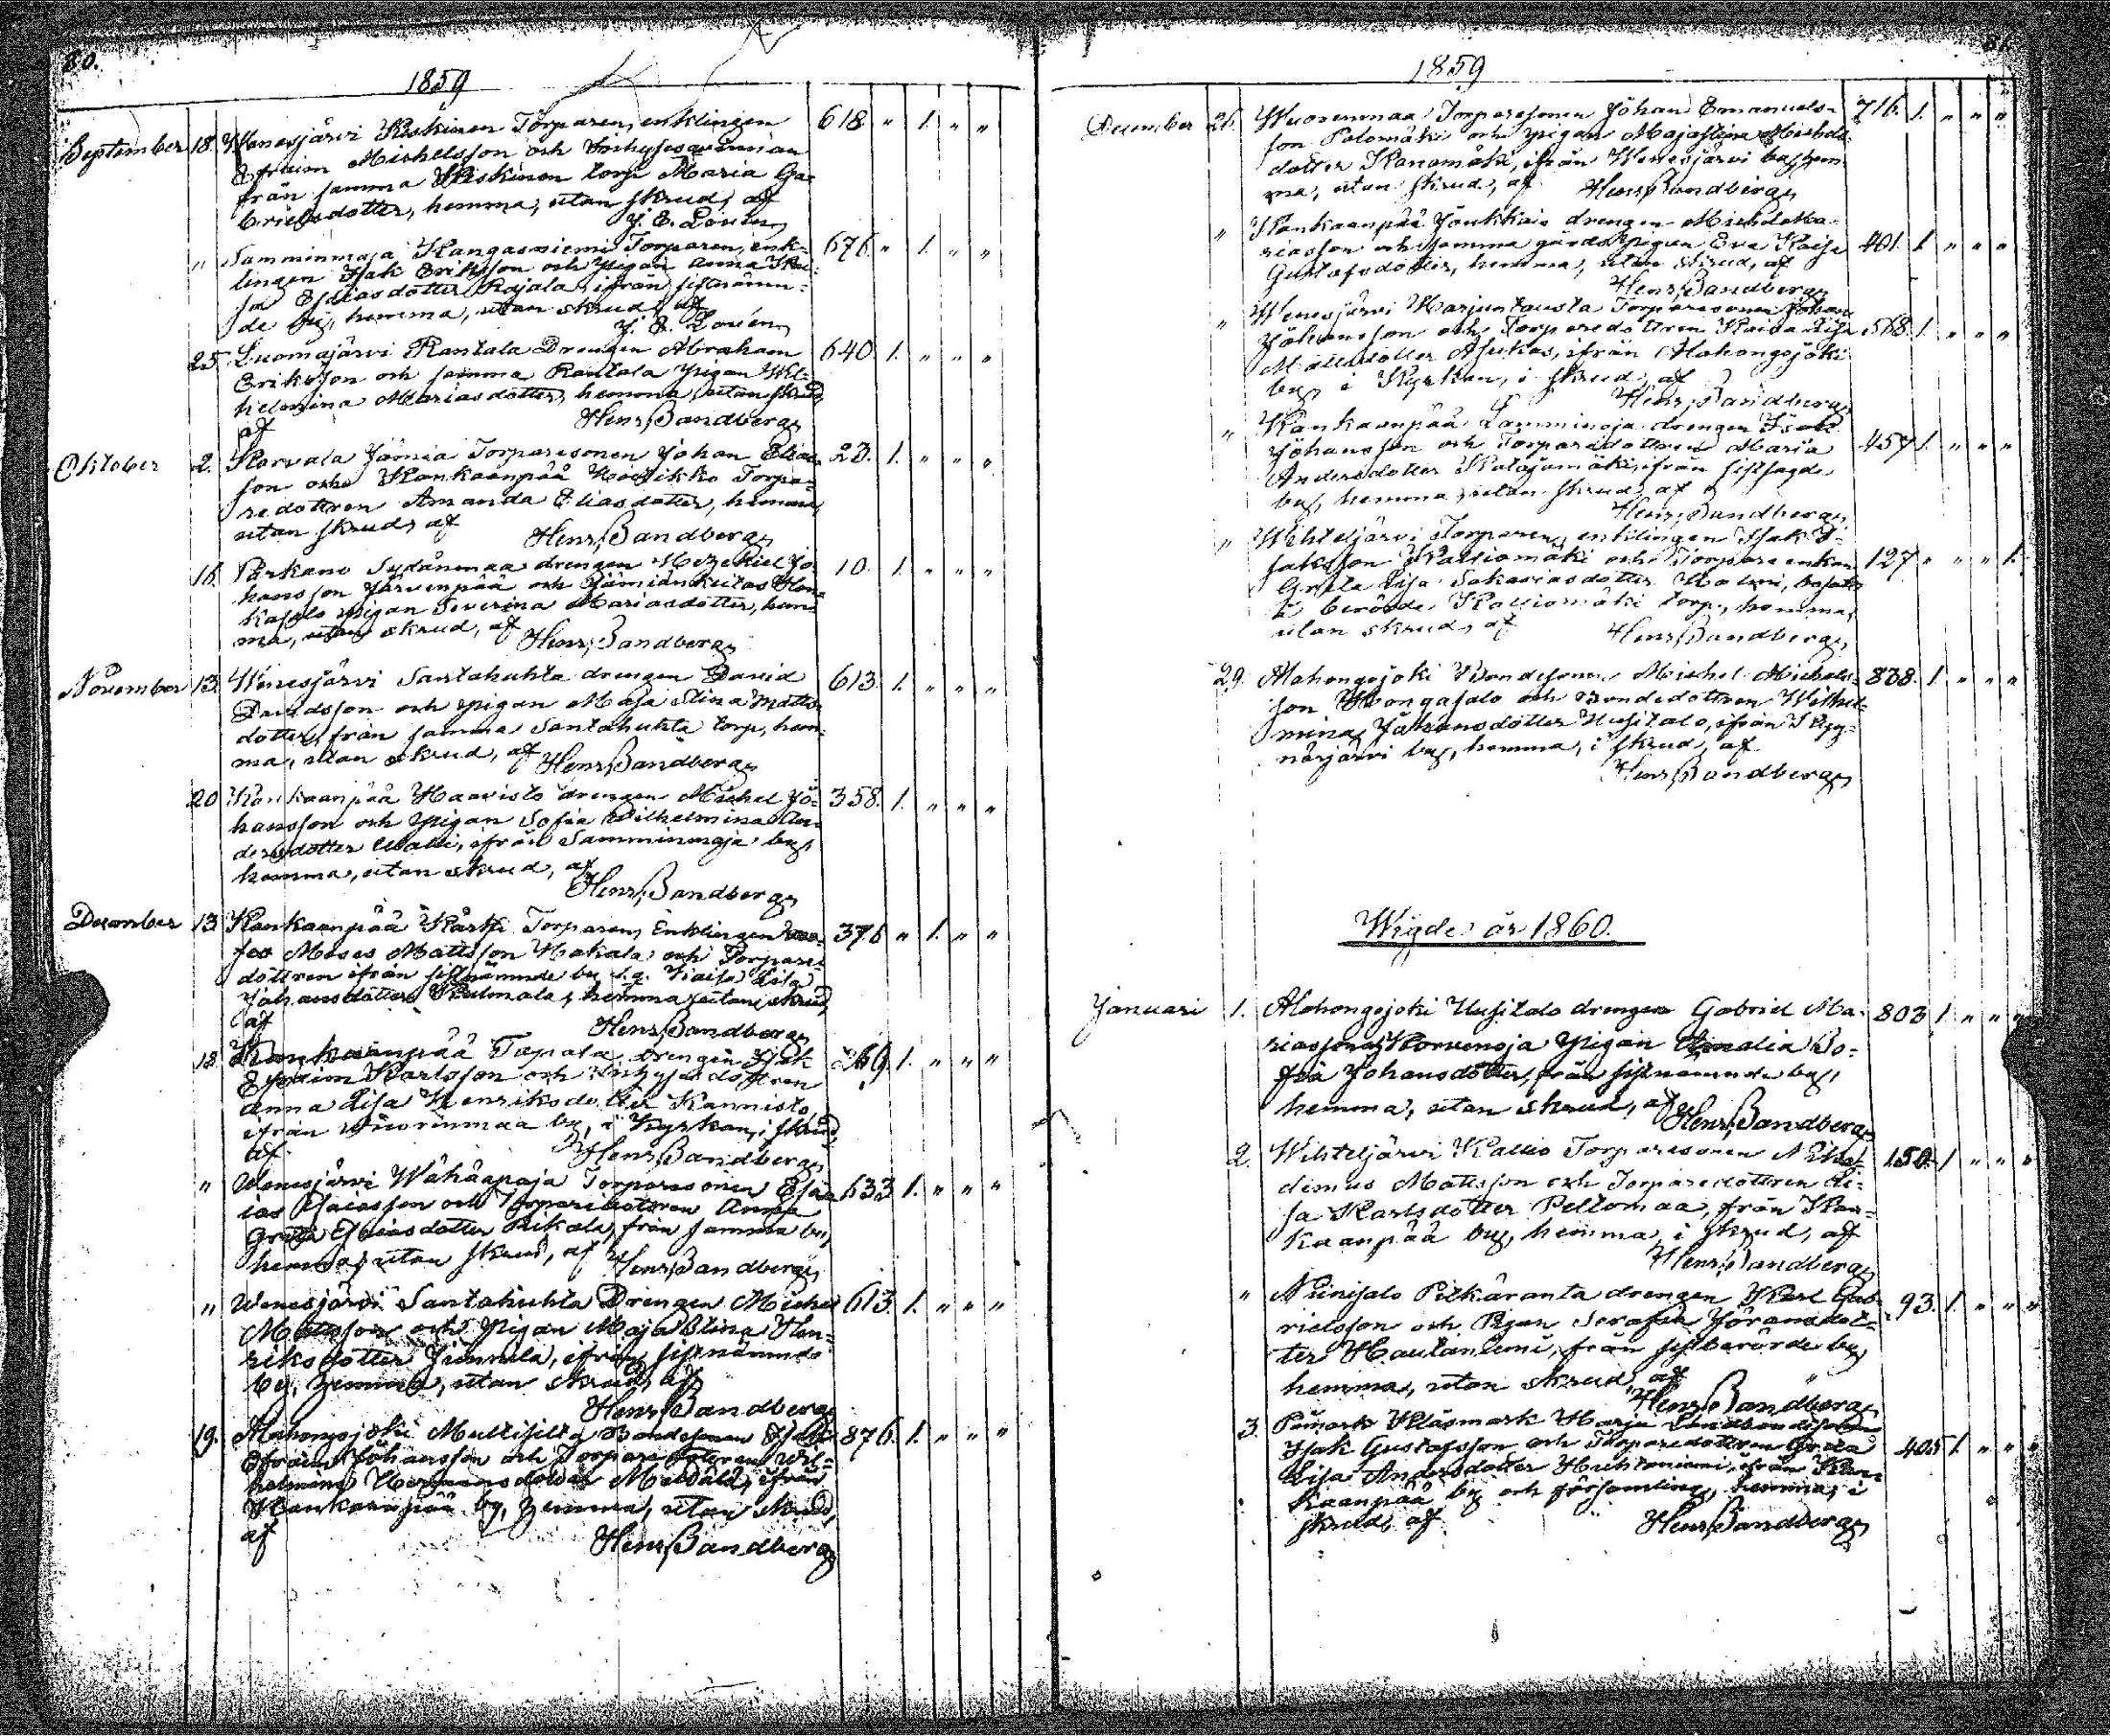 80.
1859
September 18. Wenesjärvi Kiskinen Torparen, enklingen 618 " 1. " "
Efraim Michelsson och Inhysesqvinnan
från samma Kiskinen torp Maria Ga-
brielsdotter, hemma, utan skrud, af
J. E. Lonién
" Samminmaja Kangasniemi Torparen, enk- 676. " 1. " "
lingen Isak Eriksson och pigan Anna Kai-
sa Esaiasdotter Rajala, ifrån sistnämn-
de by, hemma, utan skrud, af
J. E. Lonién
25. Luomajärvi Rantala Drengen Abraham 640 1. " " "
Eriksson och samma Rantala pigan Wil-
helmina Mariasdotter, hemma, utan skrud,
af
Henr. Sandberg
Oktober 2. Karvala Jämiä Torparesonen Johan Elias- 23. 1. " " "
son och Kankaanpää Torpa-
redottren Amanda Eliasdotter, hemma,
utan skrud, af
Henr. Sandberg
16. Parkano Sydänmaa drengen Hezekiel Jo- 10. 1. " " "
hansson Järvenpää och Jämiänkeitas Hon-
kasalo pigan Severina Mariasdotter, hem-
ma, utan skrud, af
Henr. Sandberg
November 13. Wenesjärvi Santahuhta drengen David 613 1. " " "
Davidsson och pigan Maja Stina Matts-
dotter, från samma Santahuhta torp, hem-
ma, utan skrud, af
Henr. Sandberg
20 Kankaanpää Haavisto drengen Michel Jo- 358. 1. " " "
hansson och pigan Sofia Wilhelmina An-
dersdotter Uvalli, ifrån Samminmaja by,
hemma, utan skrud, af
Henr. Sandberg
December 13 Kankaanpää Kärki Torparen, Enklingen 376 " 1. " "
Moses Mattsson Hakala och Torpare-
dottren ifrån sistnämnde by s.g. Kaisa Lisa
Johansdotter Kulmala, hemma, utan skrud,
af
Henr. Sandberg
18 Kankaanpää Tapala drengen Isak 269. 1. " " "
Efraim Karlsson och Inhysesdottren
Anna Lisa Henriksdotter Kannisto,
ifrån Wuorenmaa by, i Kyrkan, i skrud,
af
Henr. Sandberg
" Wenesjärvi Wähäapaja Torparesonen Esa- 633 1. " " "
ias Esaiasson och Torparedottren Anna
Greta Esaiasdotter Rikala, från samma by,
hemma, utan skrud, af
Henr. Sandberg
" Wenesjärvi Santahuhta Drengen Michel 613. 1. " " "
Mattsson och pigan Maja Stina Hen-
riksdotter Junnila, ifrån sistnämnde
by, hemma, utan skrud, af
Henr. Sandberg
19. Alahongojoki Multisilta Bondesonen Isak 876. 1. " " "
Efraim Johansson och Torparedottren Wil-
helmina Hermansdotter Mettälä, ifrån
Kankaanpää by, hemma, utan skrud,
af
Henr. Sandberg
81.
1859
December 26. Wuorenmaa Torparesonen Johan Emanuels- 716. 1. " " "
son Palomäki och pigan Majastina Michels-
dotter Kanamäki, ifrån Wenesjärvi by, hem-
ma, utan skrud, af Henr. Sandberg
" Kankaanpää Joukkais drengen Michel Ma- 401. 1. " " "
riasson och samma gårds pigan Eva Kaisa
Gustafsdotter, hemma, utan skrud, af
Henr. Sandberg
" Wenesjärvi Harjuntausta Torparesonen Johan 568. 1. " " "
Johansson och Torparedottren Kaisa Lisa
Mattsdotter Asukas, ifrån Alahongojoki
by, i Kyrkan, i skrud, af
Henr. Sandberg
" Kankaanpää Lamminoja drengen Isak 457 1. " " "
Johansson och Torparedottren Maria
Andersdotter Katajamäki, ifrån sistsagde
by, hemma, utan skrud, af
Henr. Sandberg
" Wihteljärvi Torparen, enklingen Isak I- 127 " " " 1.
saksson Kalliomäki och Torpare enkan
Greta Lisa Sakariasdotter Kalmi, bosatt
å berörde Kalliomäki torp, hemma,
utan skrud, af
Henr. Sandberg
29. Alahongojoki Bondesonen Michel Michels- 838. 1. " " "
son Hongasalo och Bondedottren Wilhel-
mina Johansdotter Uusitalo, ifrån Kyy-
näsjärvi by, hemma, i skrud, af
Henr. Sandberg
Wigde år 1860.
Januari 1. Alahongojoki Uusitalo drengen Gabriel Ma- 803 1. " " "
riasson, Korvenoja pigan Amalia So-
fia Johansdotter, från sistnämnde by,
hemma, utan skrud, af
Henr. Sandberg
2. Wihteljärvi Kallio Torparesonen Niko- 150. 1 " " "
dimus Mattsson och Torparedottren Li-
sa Karlsdotter Peltomaa, från Kan-
kaanpää by, hemma, i skrud, af
Henr. Sandberg
" Niinisalo Pitkäranta drengen Karl Gab- 93. 1. " " "
rielsson och Pigan Serafia Göransdot-
ter Hautaniemi, från sistberörde by,
hemma, utan skrud, af
Henr. Sandberg
3. Påmark Kläsmark Harju Landbondesonen 405 1. " " "
Isak Gustafsson och Torparedottren Greta
Lisa Andersdotter Huhtaniemi, ifrån Kan-
kaanpää by och församling, hemma, i
skrud, af
Henr. Sandberg